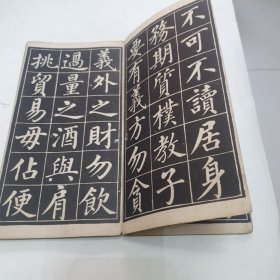 不可不讀居身
務期質樸教子
要有義方勿貪
義外之財勿飲
過量之酒與肩
挑貿易毋佔便